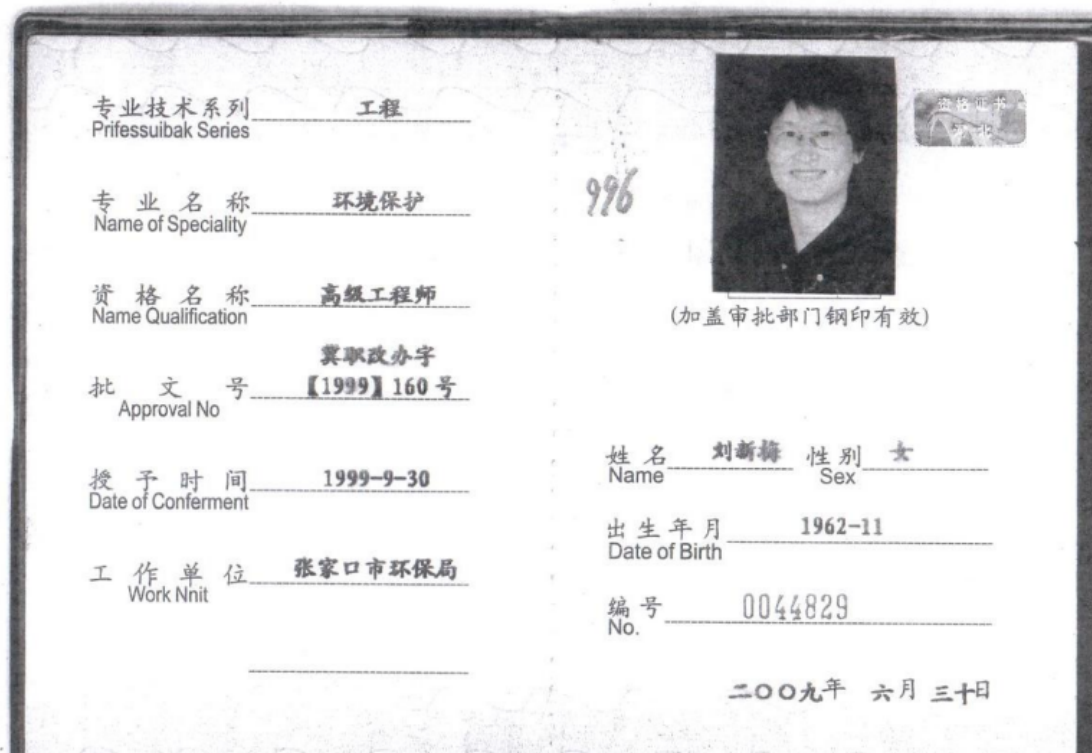 专业技术系列 工程
Prifessuibak Series
专业名称 环境保护
Name of Speciality
资格名称 高级工程师
Name Qualification
冀职改办字
批文号 【1999】160号
Approval No
授予时间 1999-9-30
Date of Conferment
工作单位 张家口市环保局
Work Nnit
资格证书
996
(加盖审批部门钢印有效)
姓名 刘新梅 性别 女
Name Sex
出生年月 1962-11
Date of Birth
编号 0044829
No.
二〇〇九年 六月 三十日